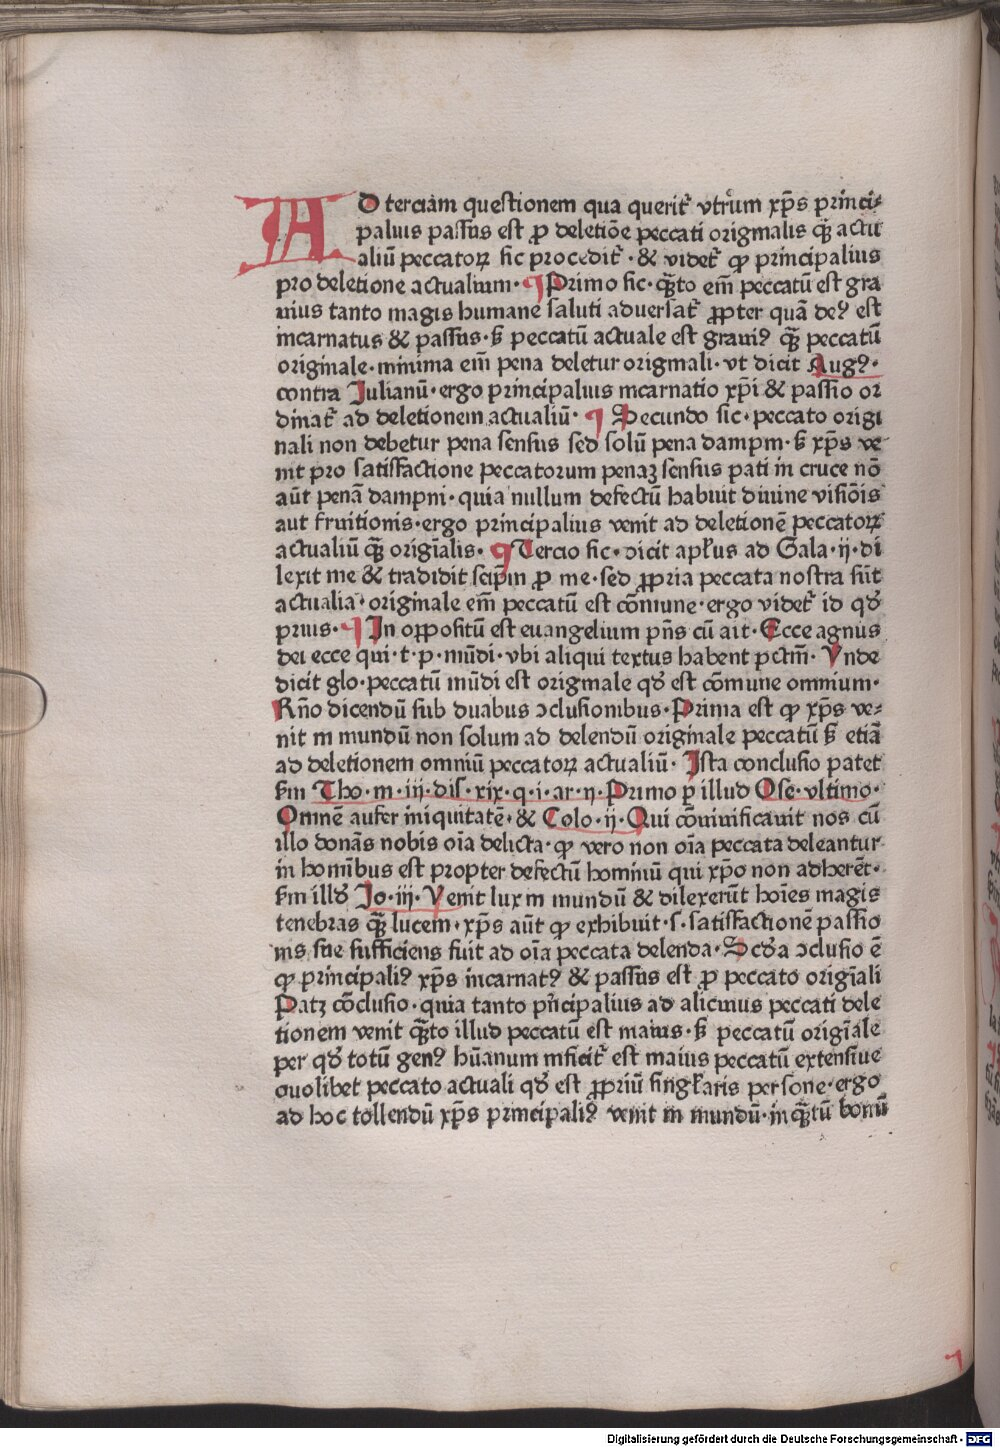 AD terciam questionem qua querit᷑ vtrum xp̄s princi⸗
paluis passus est ꝓ deletiōe peccati originalis qͣ̄ actu
aliū peccatoꝝ sic procedit᷑ · & videt᷑ ꝙ principalius
pro deletione actualium · ¶ Primo sic · qͣ̄to em̄ peccatū est gra
uius tanto magis humane saluti aduersat᷑ ꝓpter quā deꝰ est
incarnatus & passus · s̄ peccatū actuale est grauiꝰ qͣ̄ peccatū
originale · minima em̄ pena deletur originali · vt dicit Augꝰ ·
contra Julianū · ergo principalius incarnatio xp̄i & passio or
dinat᷑ ad deletionem actualiū · ¶ Secundo sic · peccato origi
nali non debetur pena sensus sed solū pena dampni · s̄ xp̄s ve
nit pro satisfactione peccatorum penaꝫ sensus pati in cruce nō
aūt penā dampni · quia nullum defectū habuit diuine visiōis
aut fruitionis · ergo principalius venit ad deletionē peccatoꝝ
actualiū qͣ̄ origīalis · ¶ Tercio sic · dicit apl̄us ad Gala · ij · di
lexit me & tradidit seip̄m ꝓ me · sed ꝓpria peccata nostra sūt
actualia · originale em̄ peccatū est cōmune · ergo videt᷑ id qd̄
prius · ¶ In oppositū est euangelium pn̄s cū ait · Ecce agnus
dei ecce qui · t · p · mūdi · vbi aliqui textus habent pctm̄ · Vnde
dicit glo · peccatū mūdi est originale qd̄ est cōmune omnium ·
Rn̄o dicendū sub duabus ɔclusionibus · Prima est ꝙ xp̄s ve⸗
nit in mundū non solum ad delendū originale peccatū s̄ etiā
ad deletionem omniū peccatoꝝ actualiū · Ista conclusio patet
s̄m Tho · in · iij · dis · xix · q · i · ar · ij · Primo ꝑ illud Ose · vltimo ·
Omnē aufer iniquitatē · & Colo · ij · Qui cōuiuificauit nos cū
illo donās nobis oīa delicta · ꝙ vero non oīa peccata deleantur
in homībus est propter defectū hominū qui xp̄o non adherēt ·
s̄m illd̄ Jo · iij · Venit lux in mundū & dilexerūt hoīes magis
tenebras qͣ̄ lucem · xp̄s aūt ꝙ exhibuit · s · satisfactionē passio
nis sue sufficiens fuit ad oīa peccata delenda · Scd̄a ɔclusio ē
ꝙ principaliꝰ xp̄s incarnatꝰ & passus est ꝓ peccato origīali
Patꝫ cōclusio · quia tanto pn̄cipalius ad alicuius peccati dele
tionem venit qͣ̄to illud peccatū est maius · s̄ peccatū origīale
per qd̄ totū genꝰ hūanum inficit᷑ est maius peccatū extensiue
quolibet peccato actuali qd̄ est ꝓpriū singl̄aris persone · ergo
ad hoc tollendū xp̄s principaliꝰ venit in mundū · in qͣ̄tū bonū
Digitalisierung gefördert durch die Deutsche Forschungsgemeinschaft - DFG